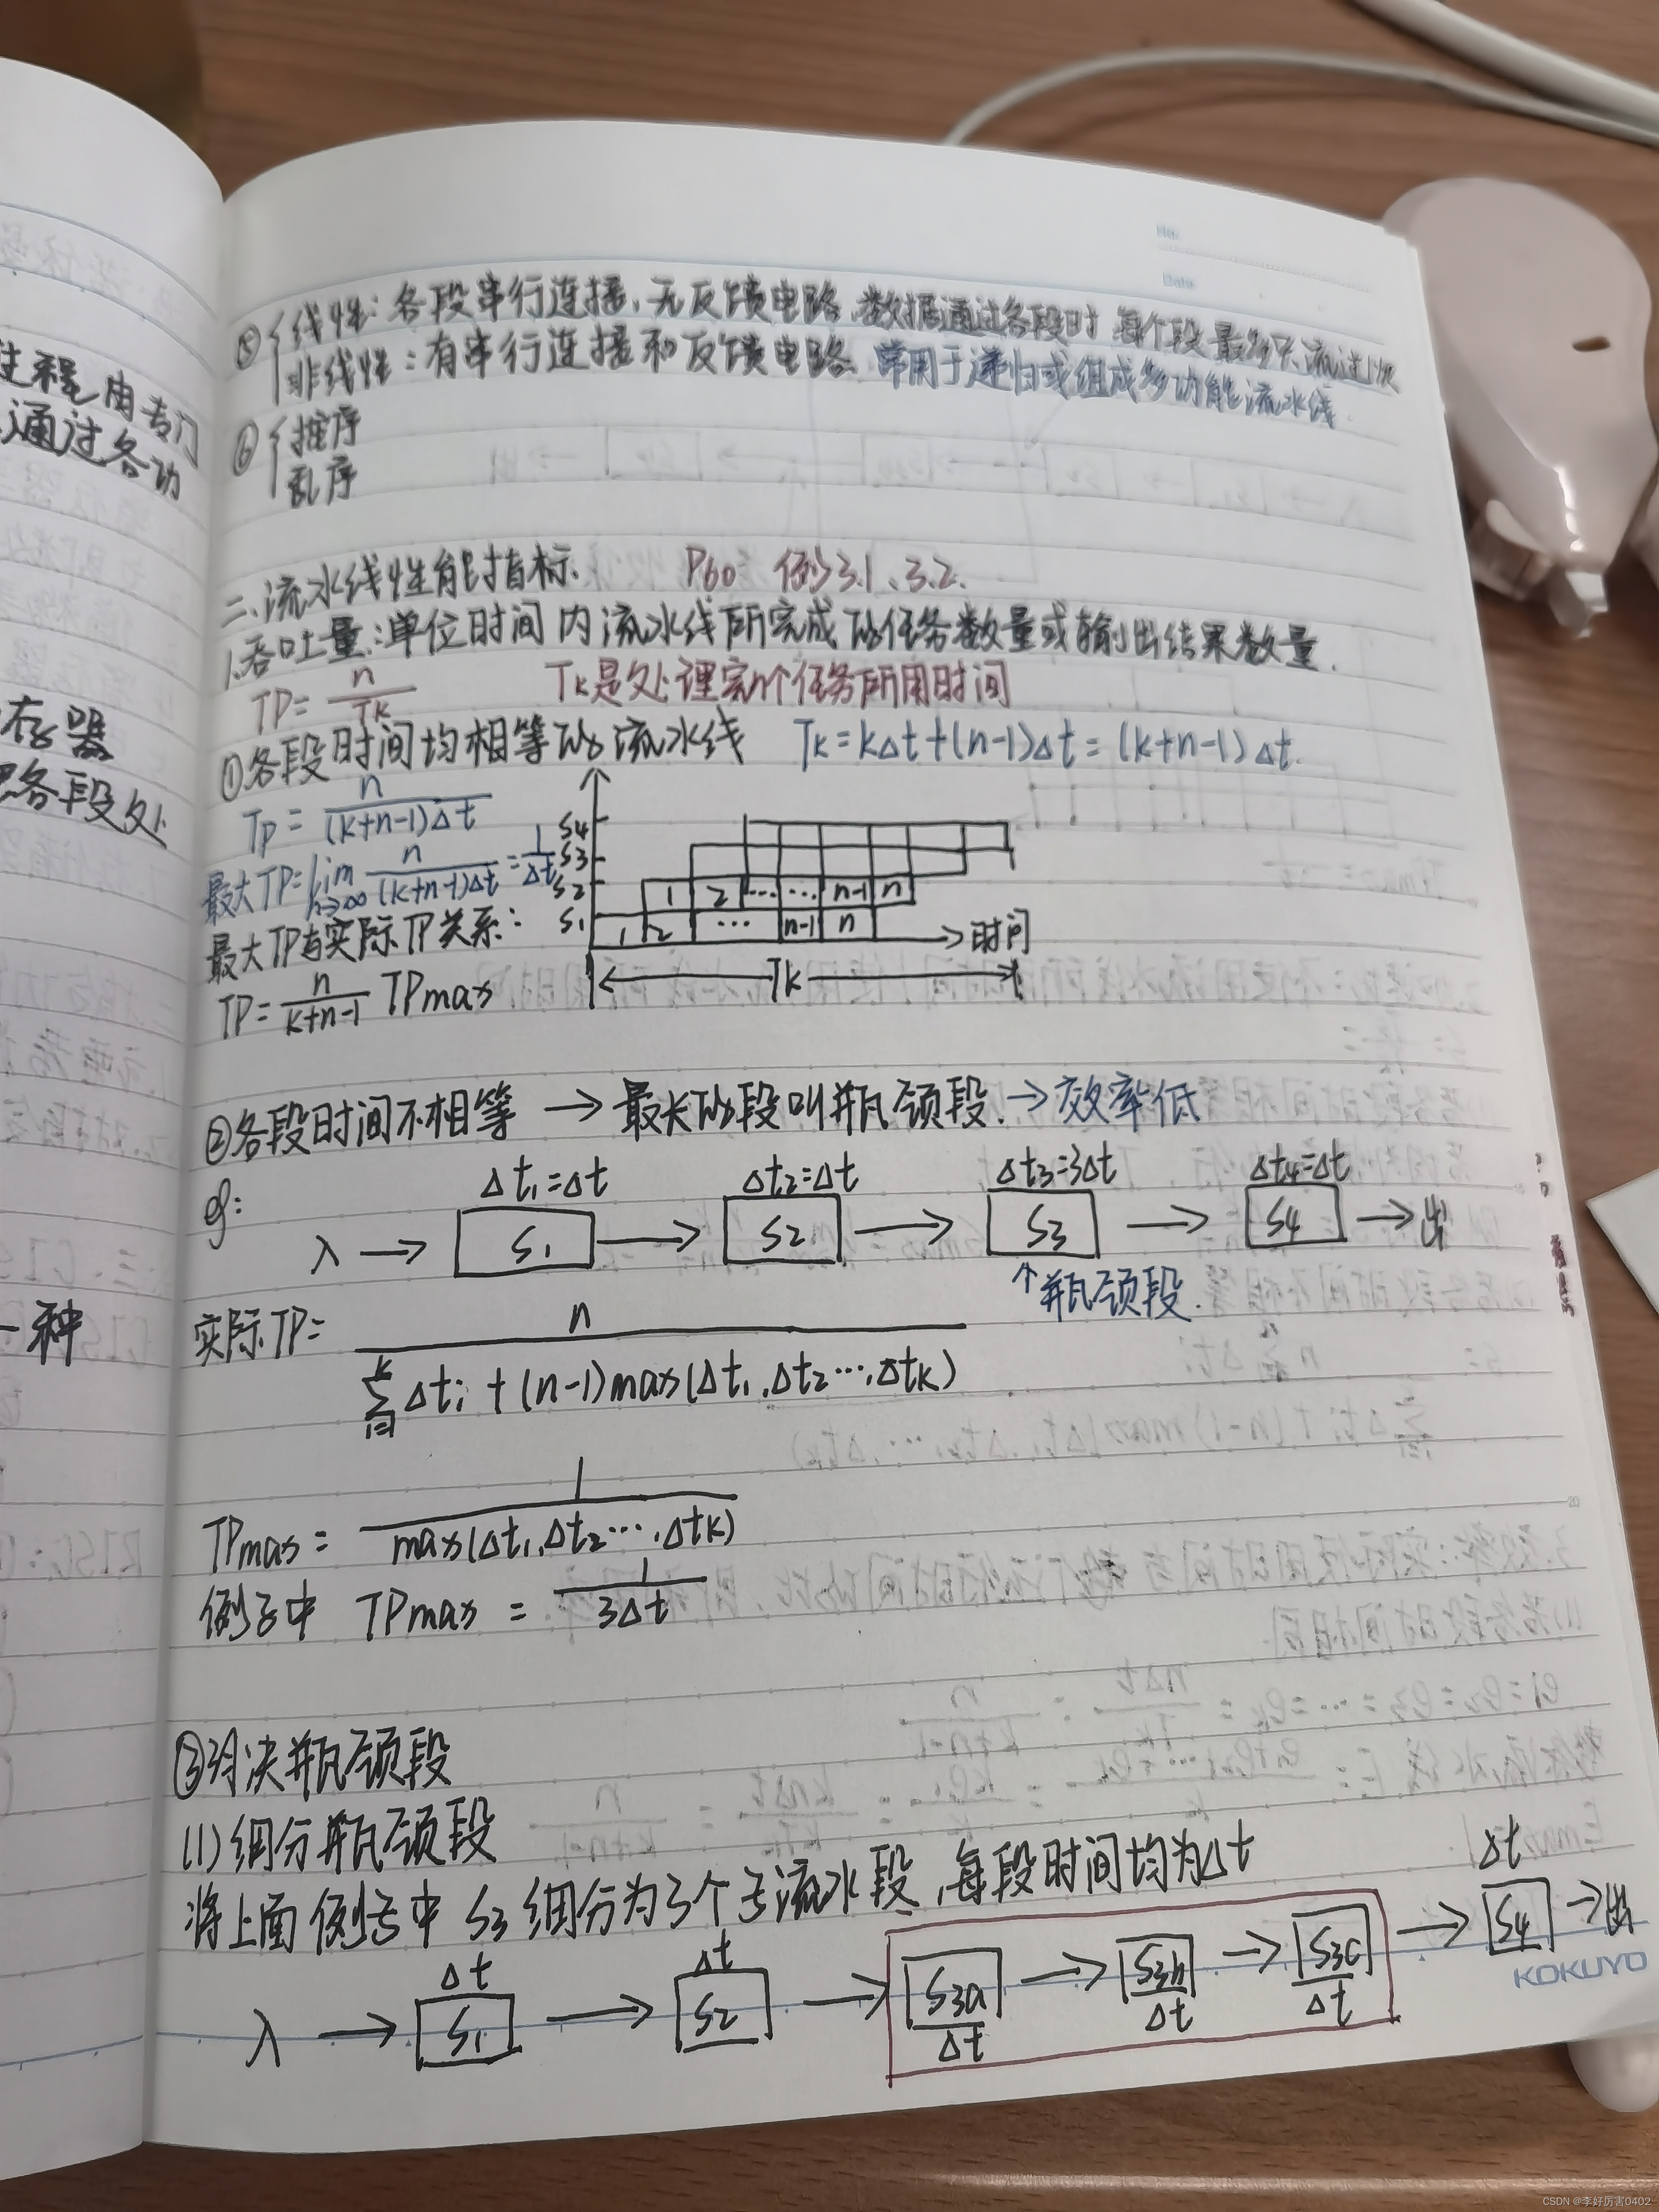 No.
Date
⑤{线性:各段串行连接、无反馈电路.数据通过各段时 每个段最多只流过1次
非线性:有串行连接和反馈电路.常用于递归或组成多功能流水线.
⑥{
乱序
二、流水线性能指标. P60 例3.1、3.2.
1.吞吐量:单位时间内流水线所完成的任务数量或输出结果数量.
TP= n/Tk Tk是处理完n个任务所用时间
①各段时间均相等的流水线 Tk=kΔt+(n-1)Δt=(k+n-1)Δt.
TP= n/((k+n-1)Δt)
最大TP=lim n→∞ n/((k+n-1)Δt)=1/Δt
最大TP与实际TP关系:
TP= n/(k+n-1) TPmax
S4
S3
S2 1 2 ... ... n-1 n
S1 1 2 ... n-1 n 时间
Tk
②各段时间不相等 → 最长的段叫瓶颈段. → 效率低
Δt1=Δt Δt2=Δt Δt3=3Δt Δt4=Δt
eg: 入 → S1 → S2 → S3 → S4 → 出
↑瓶颈段.
实际TP= n/(∑(i=1..k) Δti + (n-1)max(Δt1,Δt2…,Δtk))
TPmax = 1/max(Δt1,Δt2…,Δtk)
例子中 TPmax = 1/3Δt
③ 瓶颈段
(1)细分瓶颈段
将上面例子中 S3 细分为3个子流水段,每段时间均为Δt
Δt Δt Δt
入 → S1 → S2 → S3a → S3b → S3c → S4 → 出
Δt Δt Δt
KOKUYO
过程由专门
通过各功
存器
各段处
一种
CSDN @李好厉害0402